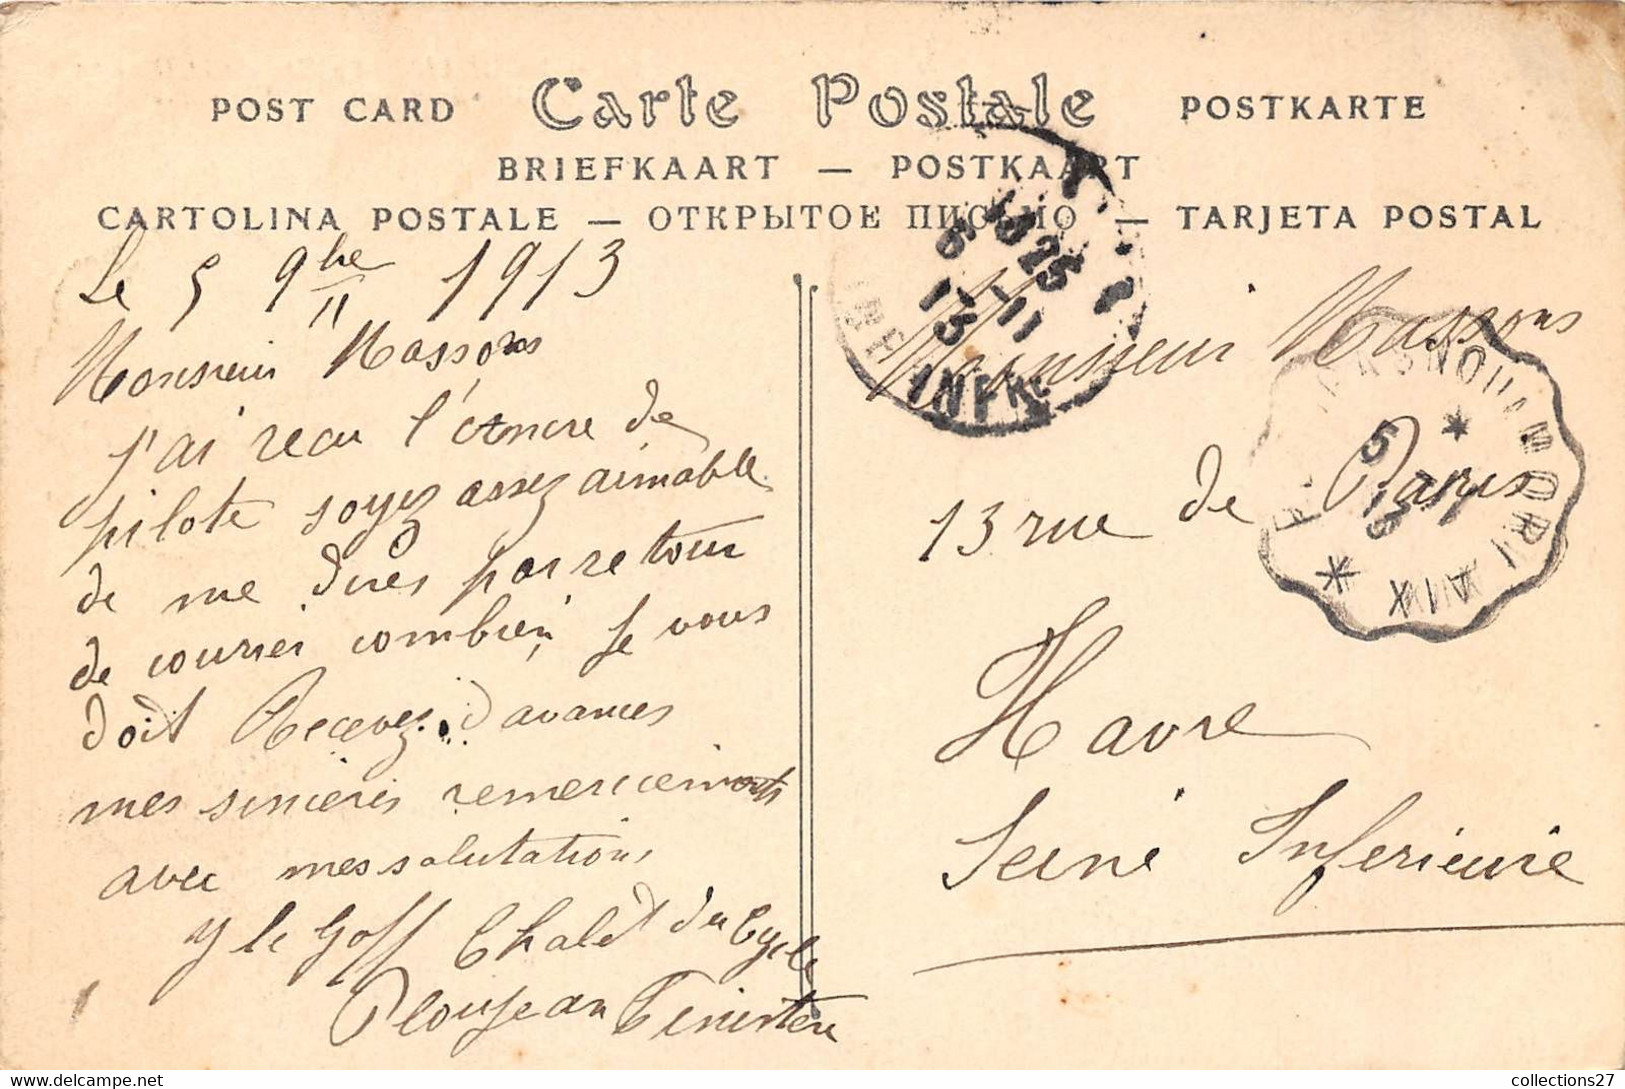 POST CARD Carte Postale POSTKARTE
BRIEFKAART — POSTKAART
CARTOLINA POSTALE — ОТКРЫТОЕ ПИСЬМО — TARJETA POSTAL
Le 5 9bre 1913
11
Monsieur Massons
J'ai recu l'encre de
pilote soyez assez aimable
de me dires par retour
de courrier combien je vous
doit Recevez d'avances
mes sincères remerciements
avec mes salutations
Y le Goff Chalet du Cycle
Ploujean Finistère
Monsieur Massons
13 rue de Paris
Havre
Seine Inferieure
18 25
6 -11
13
INFRE
5 11
13
collections27